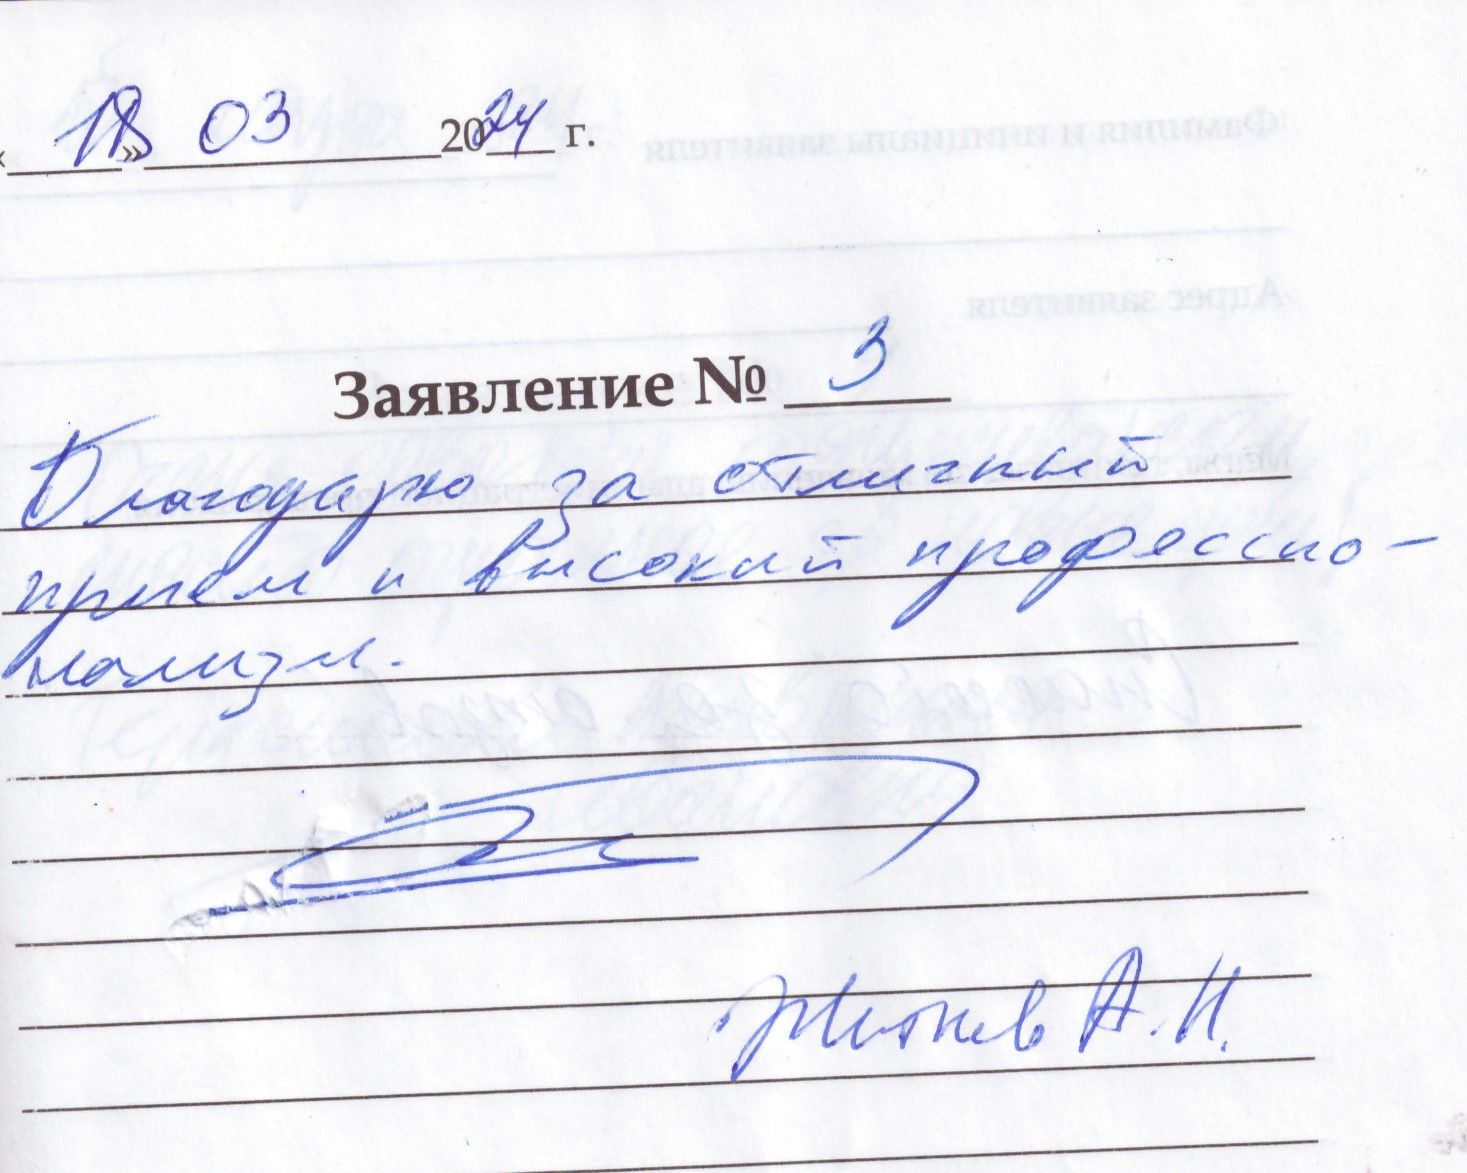 « 18 » 03 2024 г.
Заявление № 3
Благодарю за отличный
прием и высокий профессио-
нализм.
А.Н.